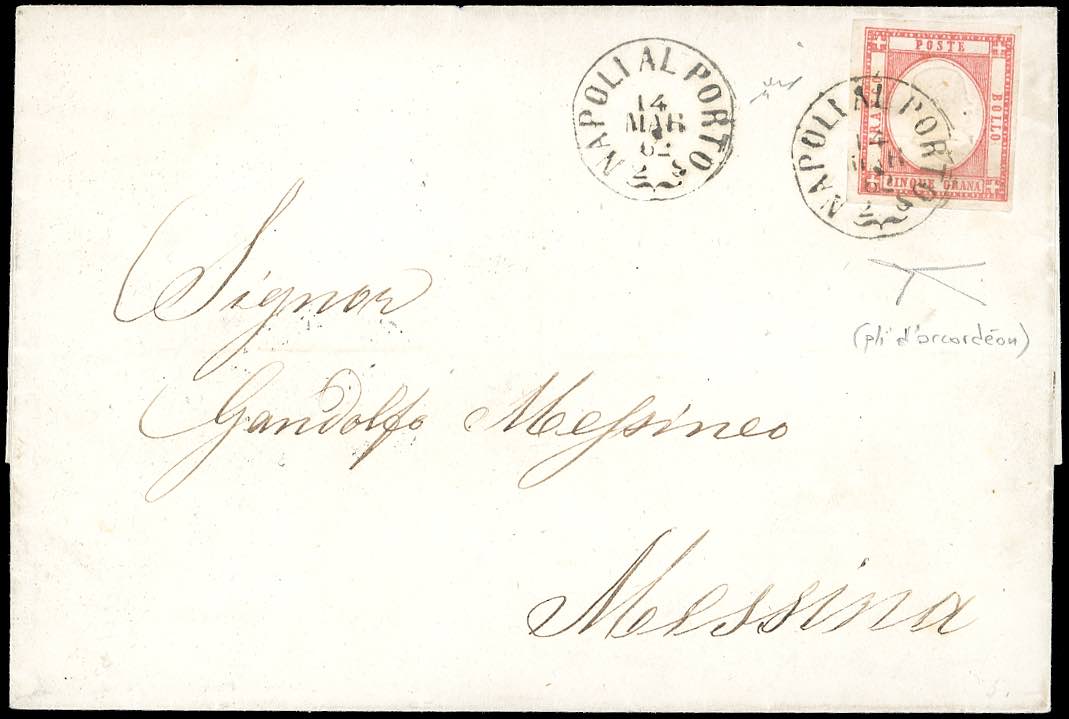 NAPOLI AL PORTO
14
MAR
62
2 S
POSTE
BOLLO
GRANA
CINQUE GRANA
NAPOLI AL PORTO
14
MAR
62
2 S
Signor
(pli d'accordéon)
Gandolfo Messineo
Messina